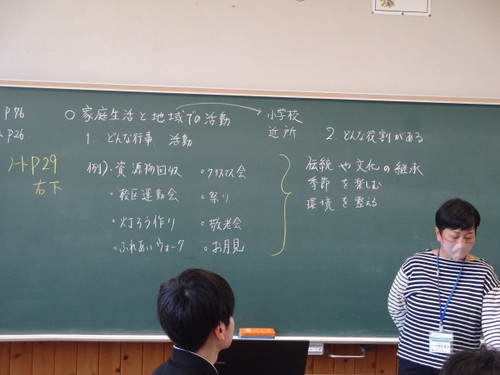 P76
P26
ノートP29
右下
○ 家庭生活と地域での活動
小学校
近所
1. どんな行事 活動
例)・資源物回収
・校区運動会
・灯ろう作り
・ふれあいウォーク
・クリスマス会
・祭り
・敬老会
・お月見
2. どんな役割がある
伝統や文化の継承
季節を楽しむ
環境を整える